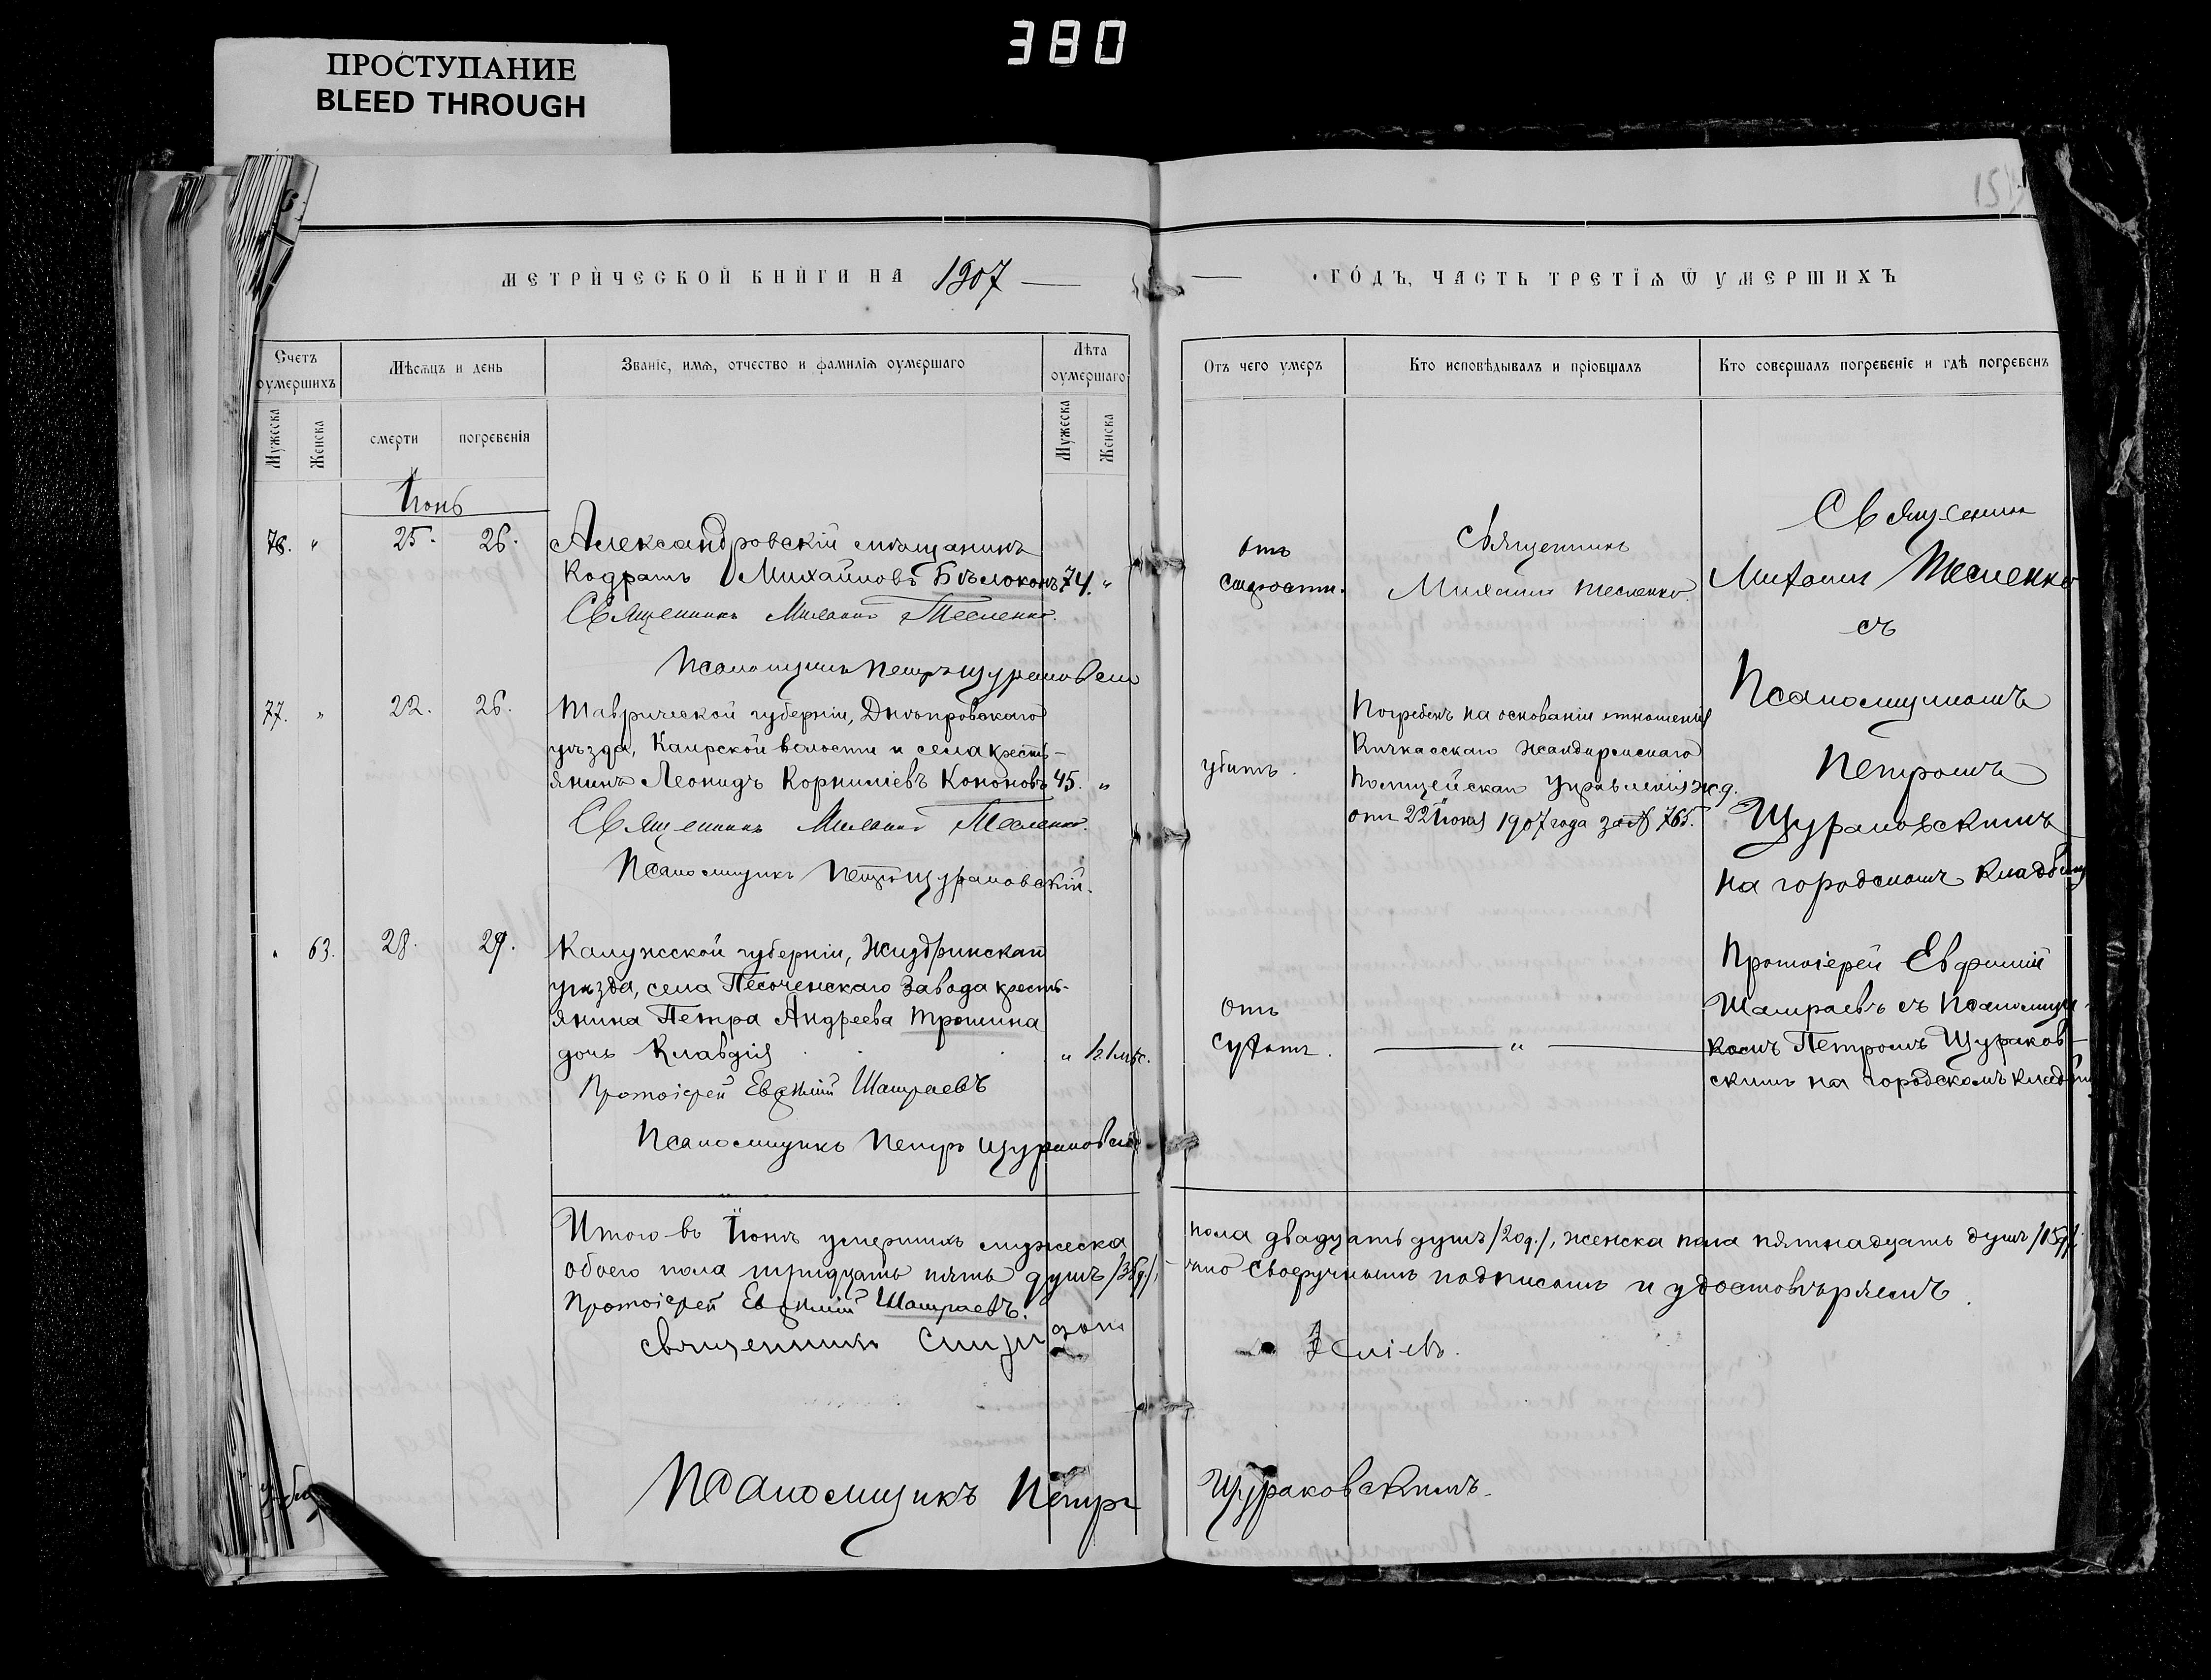 380
ПРОСТУПАНИЕ
BLEED THROUGH
МЕТРИ́ЧЕСКОЙ КНИ́ГИ НА 1907
ГО́ДЪ, ЧАСТЬ ТРЕТІѦ Ѿ УМЕРШИХЪ
Счетъ оумершихъ
Мѣсѧцъ и день
Званіе, имѧ, отчество и фамиліѧ оумершаго
Лѣта оумершаго
Отъ чего умеръ
Кто исповѣдывалъ и пріобщалъ
Кто совершалъ погребеніе и гдѣ погребенъ
Мужеска
Женска
смерти
погребенія
Мужеска
Женска
Іюнь
76. " 25. 26.
Александровскій мѣщанинъ
Кодратъ Михайловъ Бѣлоконь 74. "
Священникъ Михаилъ Тесленко.
Псаломщикъ Петръ Щураковскій
отъ
старости.
Священникъ
Михаилъ Тесленко.
Священникъ
Михаилъ Тесленко
съ
Псаломщикомъ
Петромъ
Щураковскимъ
на городскомъ кладбищѣ
77. " 22. 26.
Таврической губерніи, Днѣпровскаго
уѣзда, Каирской волости и села кресть-
янинъ Леонидъ Корниліевъ Кононовъ 45. "
Священникъ Михаилъ Тесленко.
Псаломщикъ Петръ Щураковскій.
убитъ.
Погребенъ на основаніи отношенія
Кичкасскаго Жандармскаго
Полицейскаго Управленія ж.д.
отъ 22 Іюня 1907 года за № 765.
" 63. 28. 29.
Калужской губерніи, Жиздринскаго
уѣзда, села Песоченскаго Завода кресть-
янина Петра Андреева Трошина
дочь Клавдія " 1 мѣс.
Протоіерей Евфимій Шашраевъ
Псаломщикъ Петръ Щураковскій
отъ
сухотъ.
"
Протоіерей Евфимій
Шашраевъ съ Псаломщи-
комъ Петромъ Щураков-
скимъ на городскомъ кладбищѣ
Итого въ Іюнѣ умершихъ мужеска
пола двадцать душъ /20д./, женска пола пятнадцать душъ /15д./
обоего пола тридцать пять душъ /35д./,
что своеручнымъ подписомъ и удостовѣряемъ.
Протоіерей Евфимій Шашраевъ.
Священникъ
Псаломщикъ Петръ
Щураковскимъ.